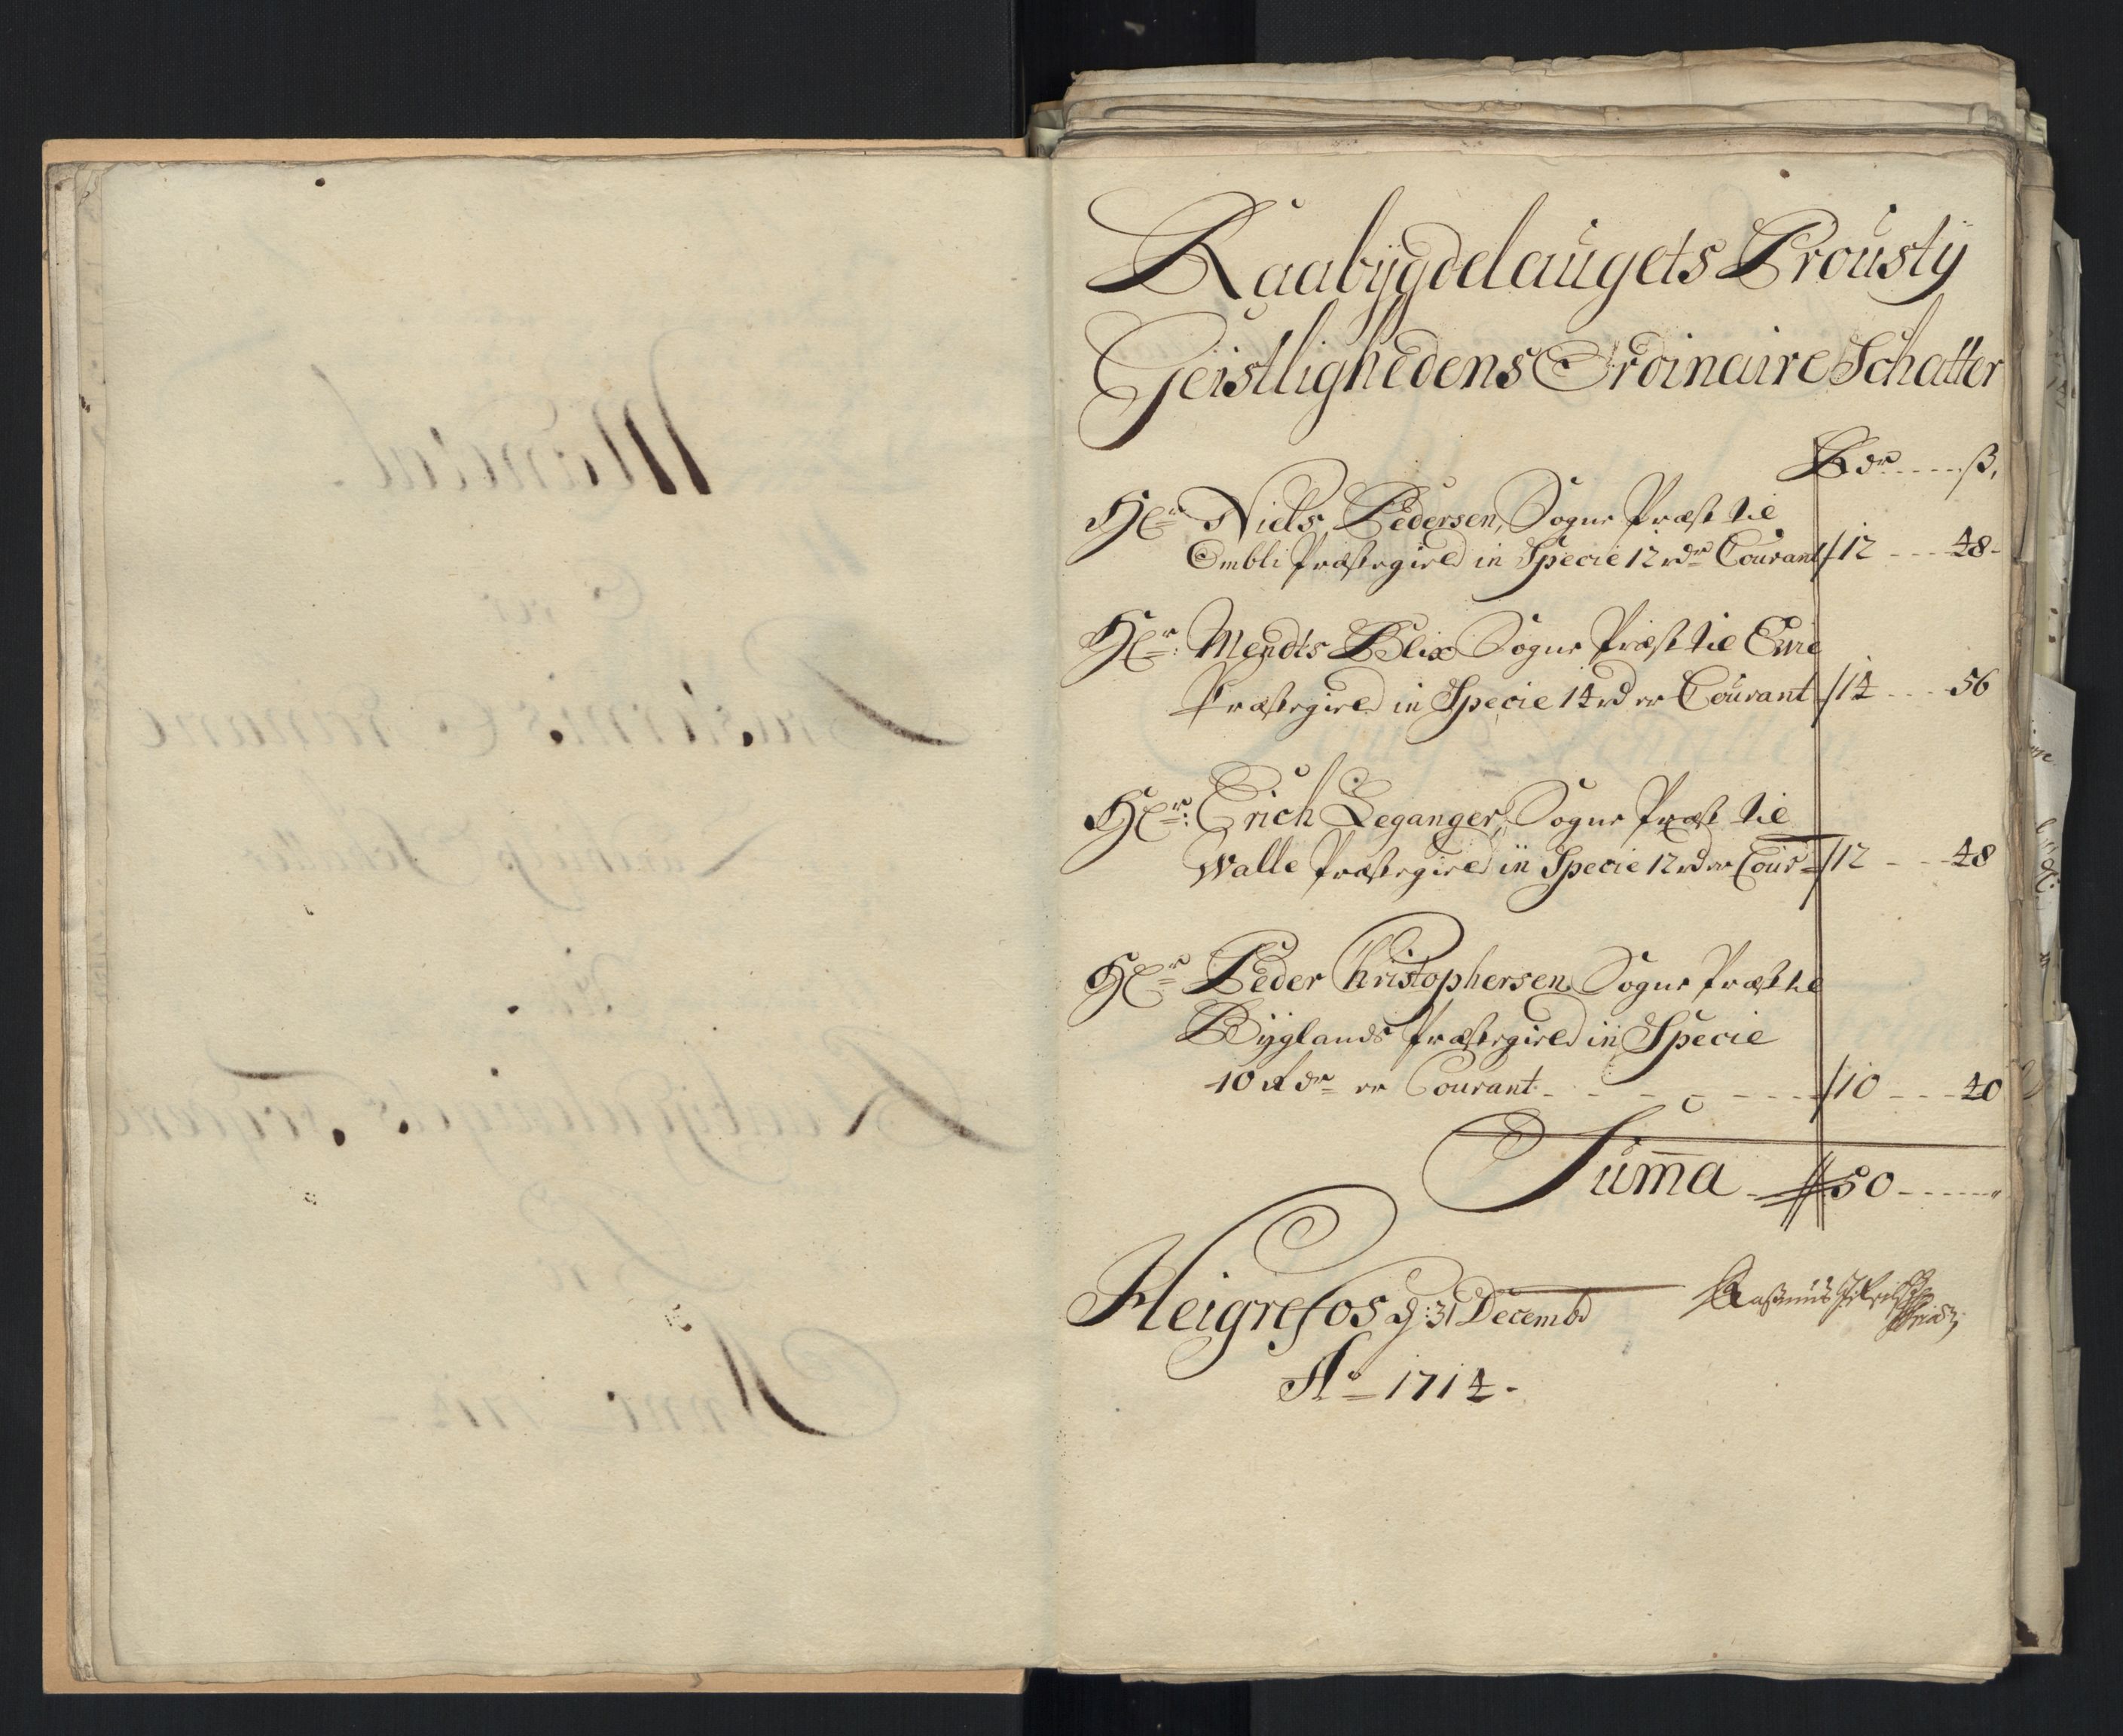 Raabÿgdelaugets Prousty
Geistlighedens Ordinaire Schatter
Rdr ß.
Hr Niels Pedersen, Sogne Præst til
Embli Præstegield in Specie 12 rdr Courant 12 - - - 48 -
Hr: Mendts Blix Sogne Præst til Evie
Præstegield in Specie 14 rd er Courant 14 - - - 56
Hr: Erich Leganger, Sogne Præst til
Walle Præstegield in Specie 12 rd er Cour 12 - - - 48
Hr Peder Christophersen Sogne Præst til
Bÿglands Præstegield in Specie
10 Rdr er Courant - - - - - - 10 - - - 40
Sum̄a - 50 - - - - -
Heigrefos d: 31 Decembr
Ao 1714 -